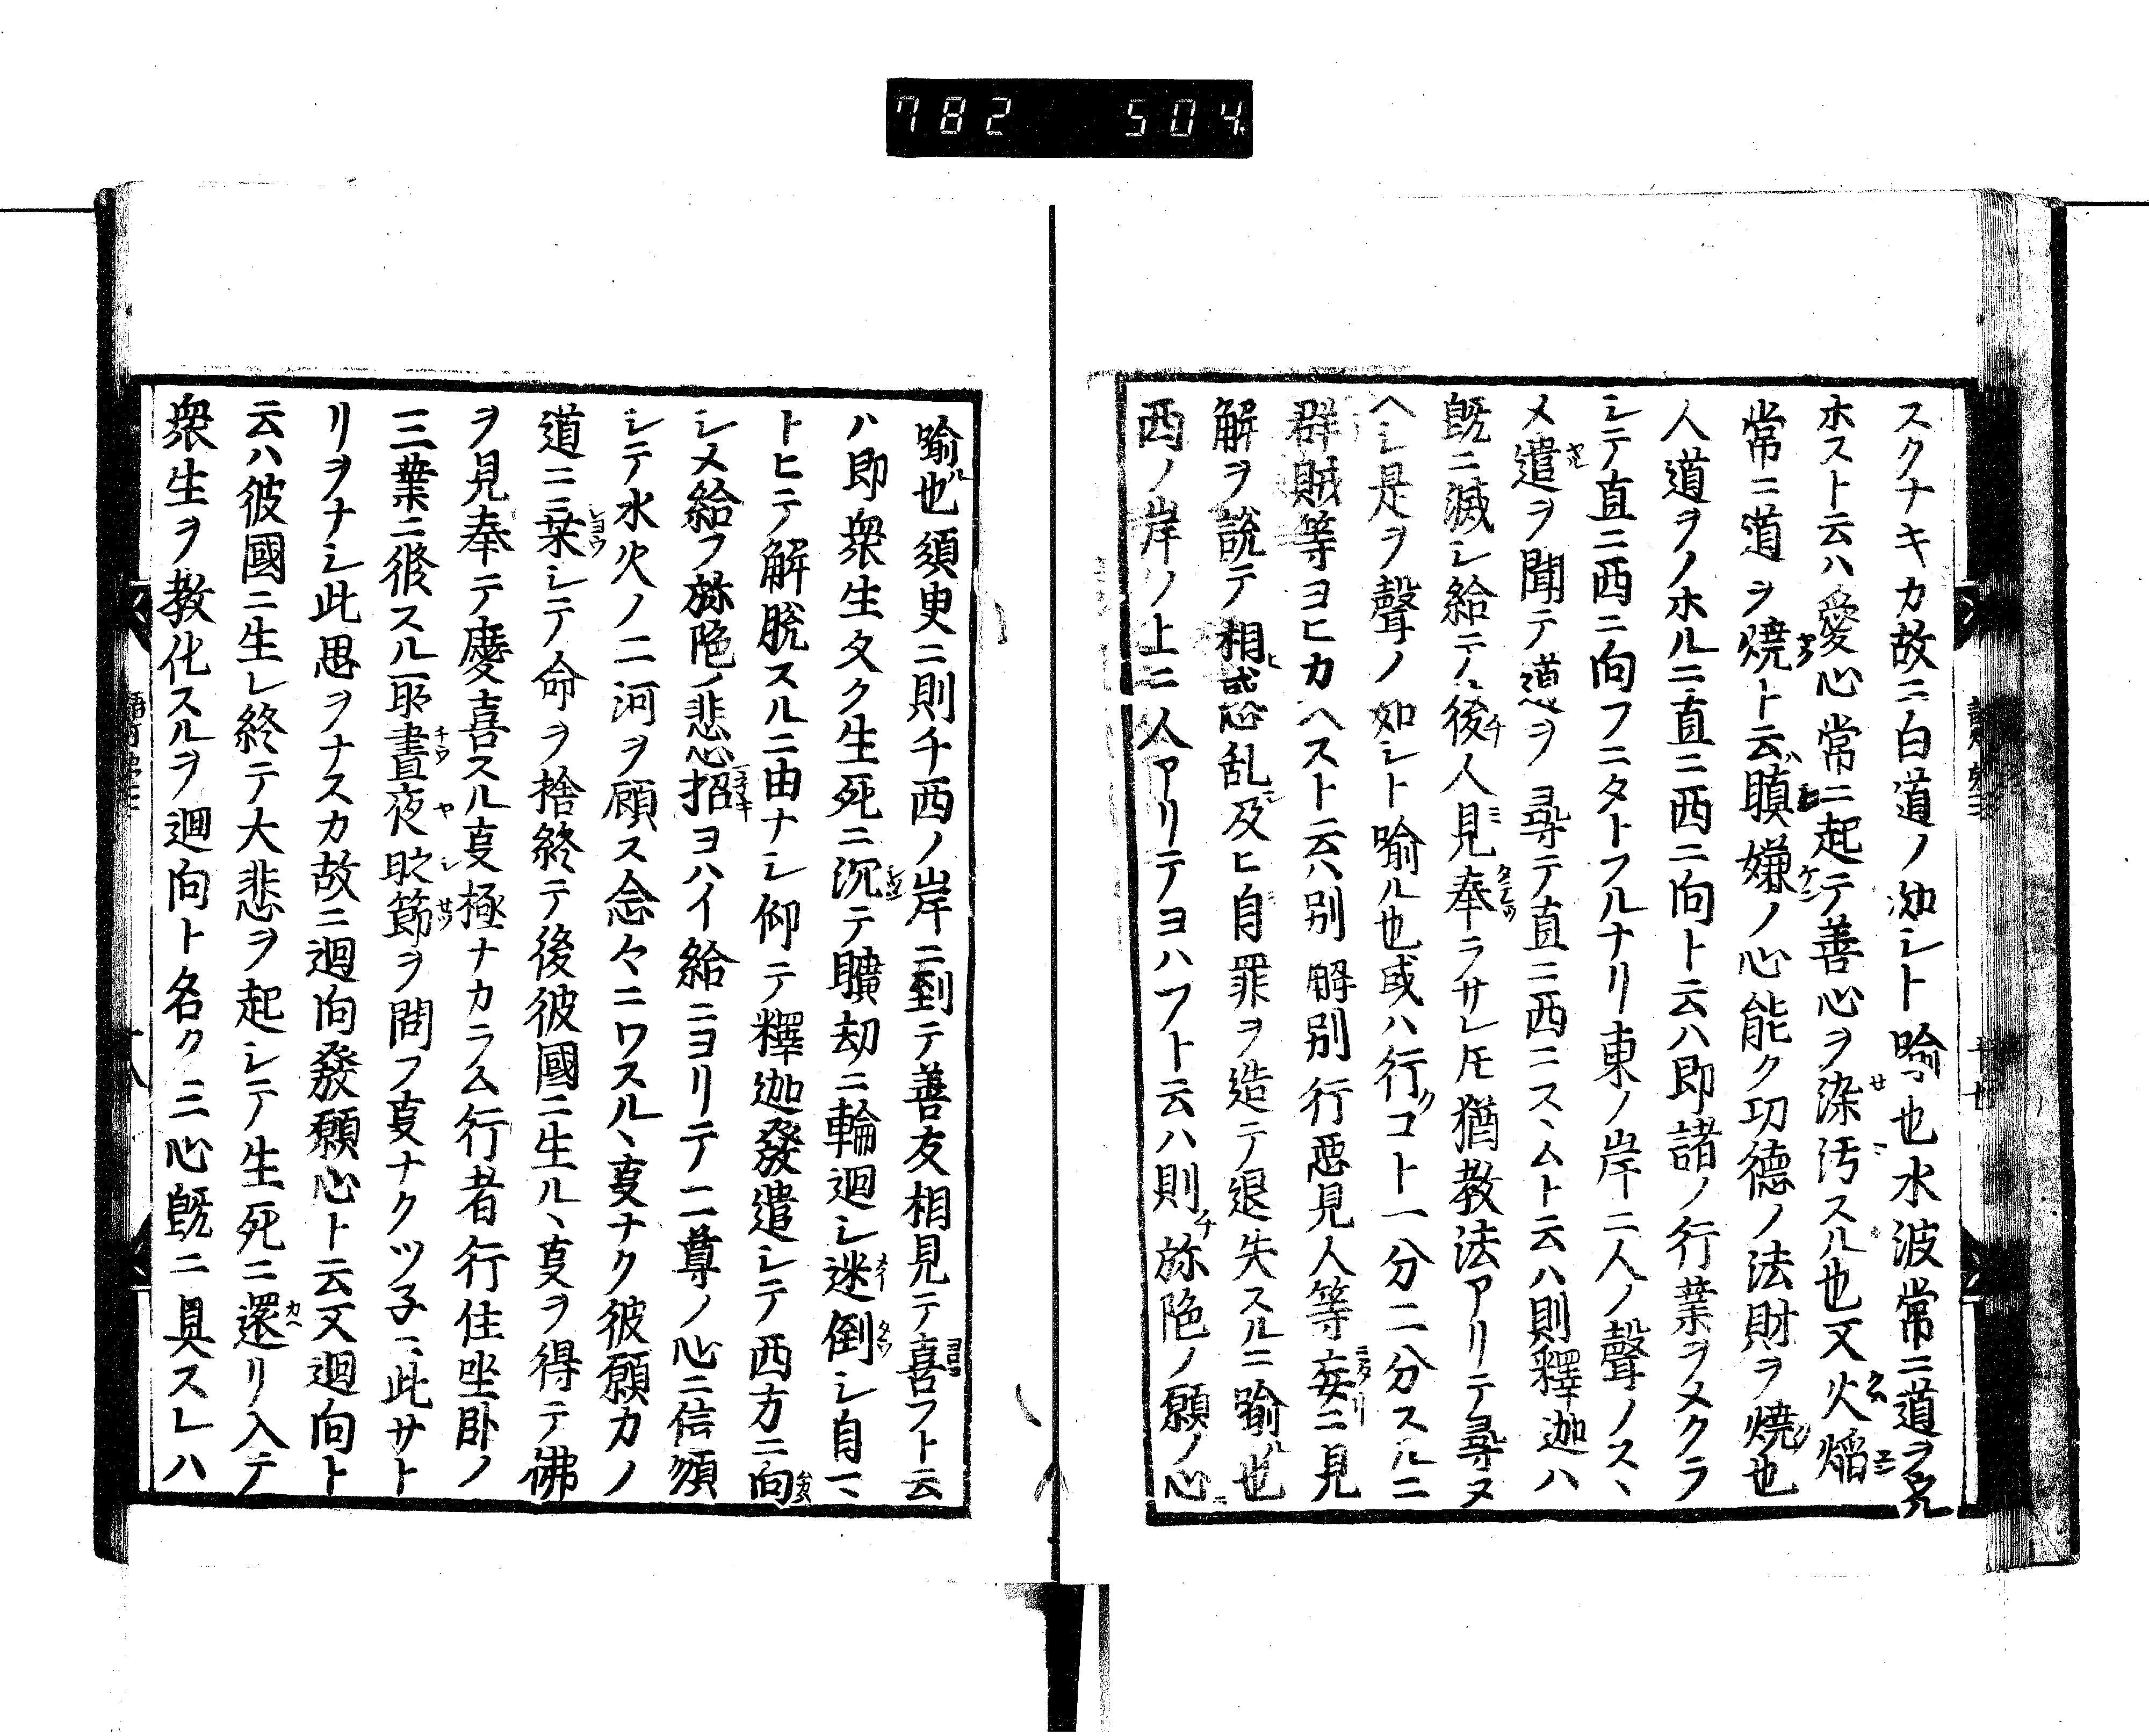 782 504
スクナキカ故ニ白道ノ如シト喩也水波常ニ道ヲ
ホスト云ハ愛心常ニ起テ善心ヲ染汚スル也又火焔
常ニ道ヲ焼ト云ハ瞋嫌ノ心能ク功德ノ法財ヲ焼也
人道ヲノホルニ直ニ西ニ向ト云ハ即諸ノ行業ヲメクラ
シテ直ニ西ニ向フニタトフルナリ東ノ岸ニ人ノ聲ノスヽ
メ遣ヲ聞テ道ヲ尋テ直ニ西ニスヽムト云ハ則釋迦ハ
既ニ滅シ給テノ後人見奉ラサレ𪜈猶教法アリテ尋ヌ
ヘシ是ヲ聲ノ如シト喩ル也或ハ行コト一分二分スルニ
群賊等ヨヒカヘスト云ハ別解別行惡見人等妄ニ見
解ヲ說テ相惑乱及ヒ自罪ヲ造テ退失スルニ喩也
西ノ岸ノ上ニ人アリテヨハフト云ハ則弥陁ノ願ノ心
喩也須臾ニ則千西ノ岸ニ到テ善友相見テ喜フト云
ハ即衆生久ク生死ニ沉テ曠劫ニ輪迴シ迷倒シ自ニ
トヒテ解脫スルニ由ナシ仰テ釋迦發遣シテ西方ニ向
シメ給フ弥陁ノ悲心招ヨハイ給ニヨリテ二尊ノ心ニ信順
シテ水火ノ二河ヲ顧ス念々ニワスルヽ㕝ナク彼願力ノ
道ニ乗シテノ命ヲ捨終テ後彼國ニ生ルヽ㕝ヲ得テ佛
ヲ見奉テ慶喜スル㕝極ナカラム行者行住坐臥ノ
三業ニ修スル所晝夜時節ヲ問フ㕝ナクツ子ニ此サト
リヲナシ此思ヲナスカ故ニ迴向發願心ト云又迴向ト
云ハ彼國ニ生レ終テ大悲ヲ起シテノ生死ニ還リ入テ
衆生ヲ教化スルヲ迴向ト名ク三心既ニ具スレハ